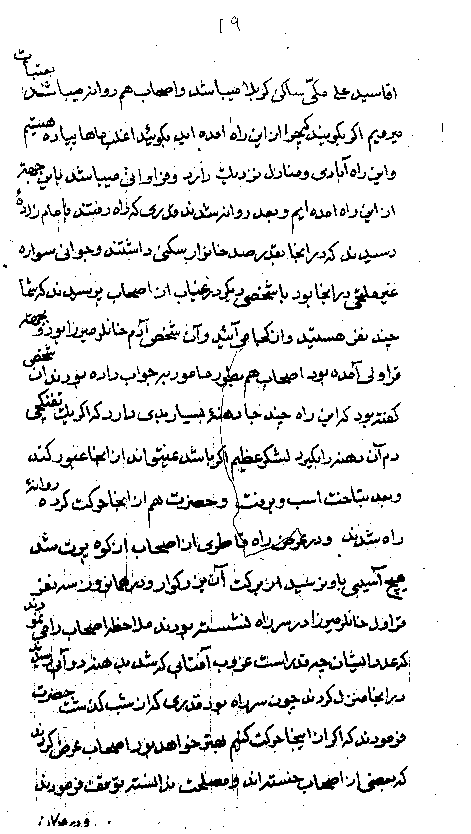 ۱۹
اقاسید علی مکّی ساکن کربلا میباشد و اصحاب هم روانه میباشند بعتبات
میرویم اگر بگویند که چرا از این راه امده اید بگوئید اغلب ماها پیاده هستیم
و این راه آبادی و منازل نزدیک دارد و فراوانی میباشد باین جهة
از این راه امده ایم و بعد روانه شدند قدری که راه رفتند بامام زادهٔ
رسیدند که در انجا بقدر صد خانوار سکنی داشتند و جوانی سواره
غیر ملتحی در انجا بود با شخصی دیگر در غیاب از اصحاب پرسیدند که شما
چند نفر هستید و از کجا می آئید و آن شخص آدم خانلر میرزا بود و بجهة
قراولی آمده بود اصحاب هم بطور مامور به جواب داده بودند ان شخص
گفته بود که این راه چند جا دهنهٔ بسیار بدی دارد که اگر یک تفنگچی
دم آن دهنه را بگیرد لشکر عظیم اگر باشد نمیتواند از انجا عبور کند
و بعد بتاخت اسب و برفت و حضرت هم از انجا حرکت کرده روانهٔ
راه شدند و در عرض راه قاطری از اصحاب از کوه پرت شد
هیچ آسیبی باو نرسید از برکت آن بزرکوار و در همانروز سه نفر
قراول خانلر میرزا در سر راه نشسته بودند ملاحظه اصحاب را می نمودند
که عدد ایشان چه قدر است غروب آفتابی که شد بدهنهٔ دو آبی رسیدند
در انجا منزل کردند چون سر راه بود قدری که از شب گذشت حضرت
فرمودند که اگر از اینجا حرکت کنیم بهتر خواهد بود اصحاب عرض کردند
که بعضی از اصحاب خسته اند و مصلحت ندانسته توقف فرمودند